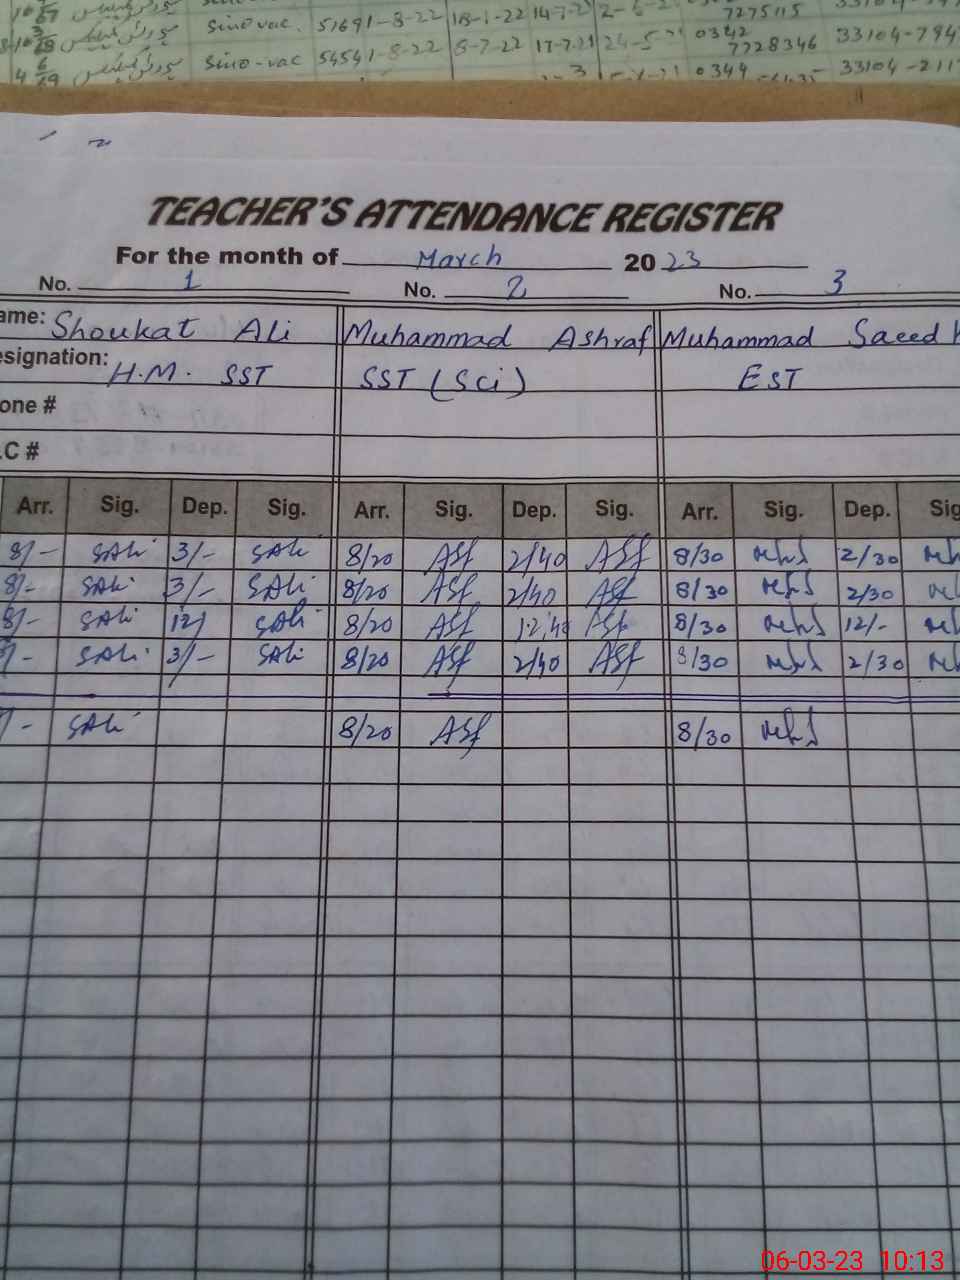 Sino vac. 51691-8-22 18-1-22 14-7-2
7275115
Sino-vac 54541-8-22 5-7-22 17-7-21 24-5-21 0342 7728346 33104-794
0344 33104-211
TEACHER'S ATTENDANCE REGISTER
For the month of March 2023
No. 1 No. 2 No. 3
ame: Shoukat Ali Muhammad Ashraf Muhammad Saeed
esignation: H.M. SST SST (Sci) EST
one #
.C #
Arr. Sig. Dep. Sig. Arr. Sig. Dep. Sig. Arr. Sig. Dep. Sig
8/- SAli 3/- SAli 8/20 ASf 2/40 ASf 8/30 2/30
8/- SAli 3/- SAli 8/20 ASf 2/40 ASf 8/30 2/30
8/- SAli 12/ SAli 8/20 ASf 12/40 ASf 8/30 12/-
/- SAli 3/- SAli 8/20 ASf 2/40 ASf 8/30 2/30
/- SAli 8/20 ASf 8/30
06-03-23 10:13